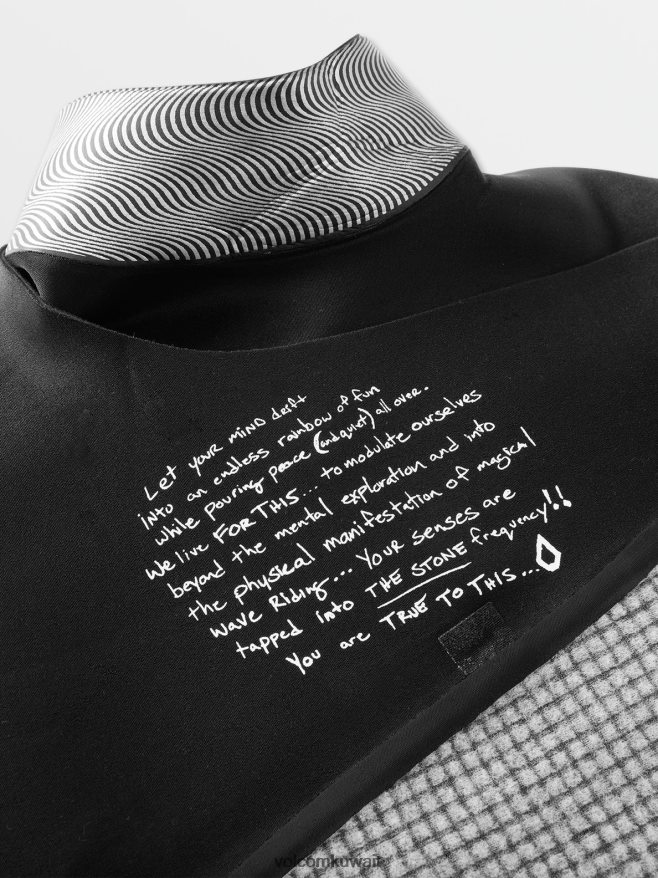 Let your mind drift
into an endless rainbow of fun
while pouring peace (and quiet) all over.
We live FOR THIS... to modulate ourselves
beyond the mental exploration and into
the physical manifestation of magical
wave Riding... Your senses are
tapped into THE STONE frequency!!
You are TRUE TO THIS...
volcomkuwait